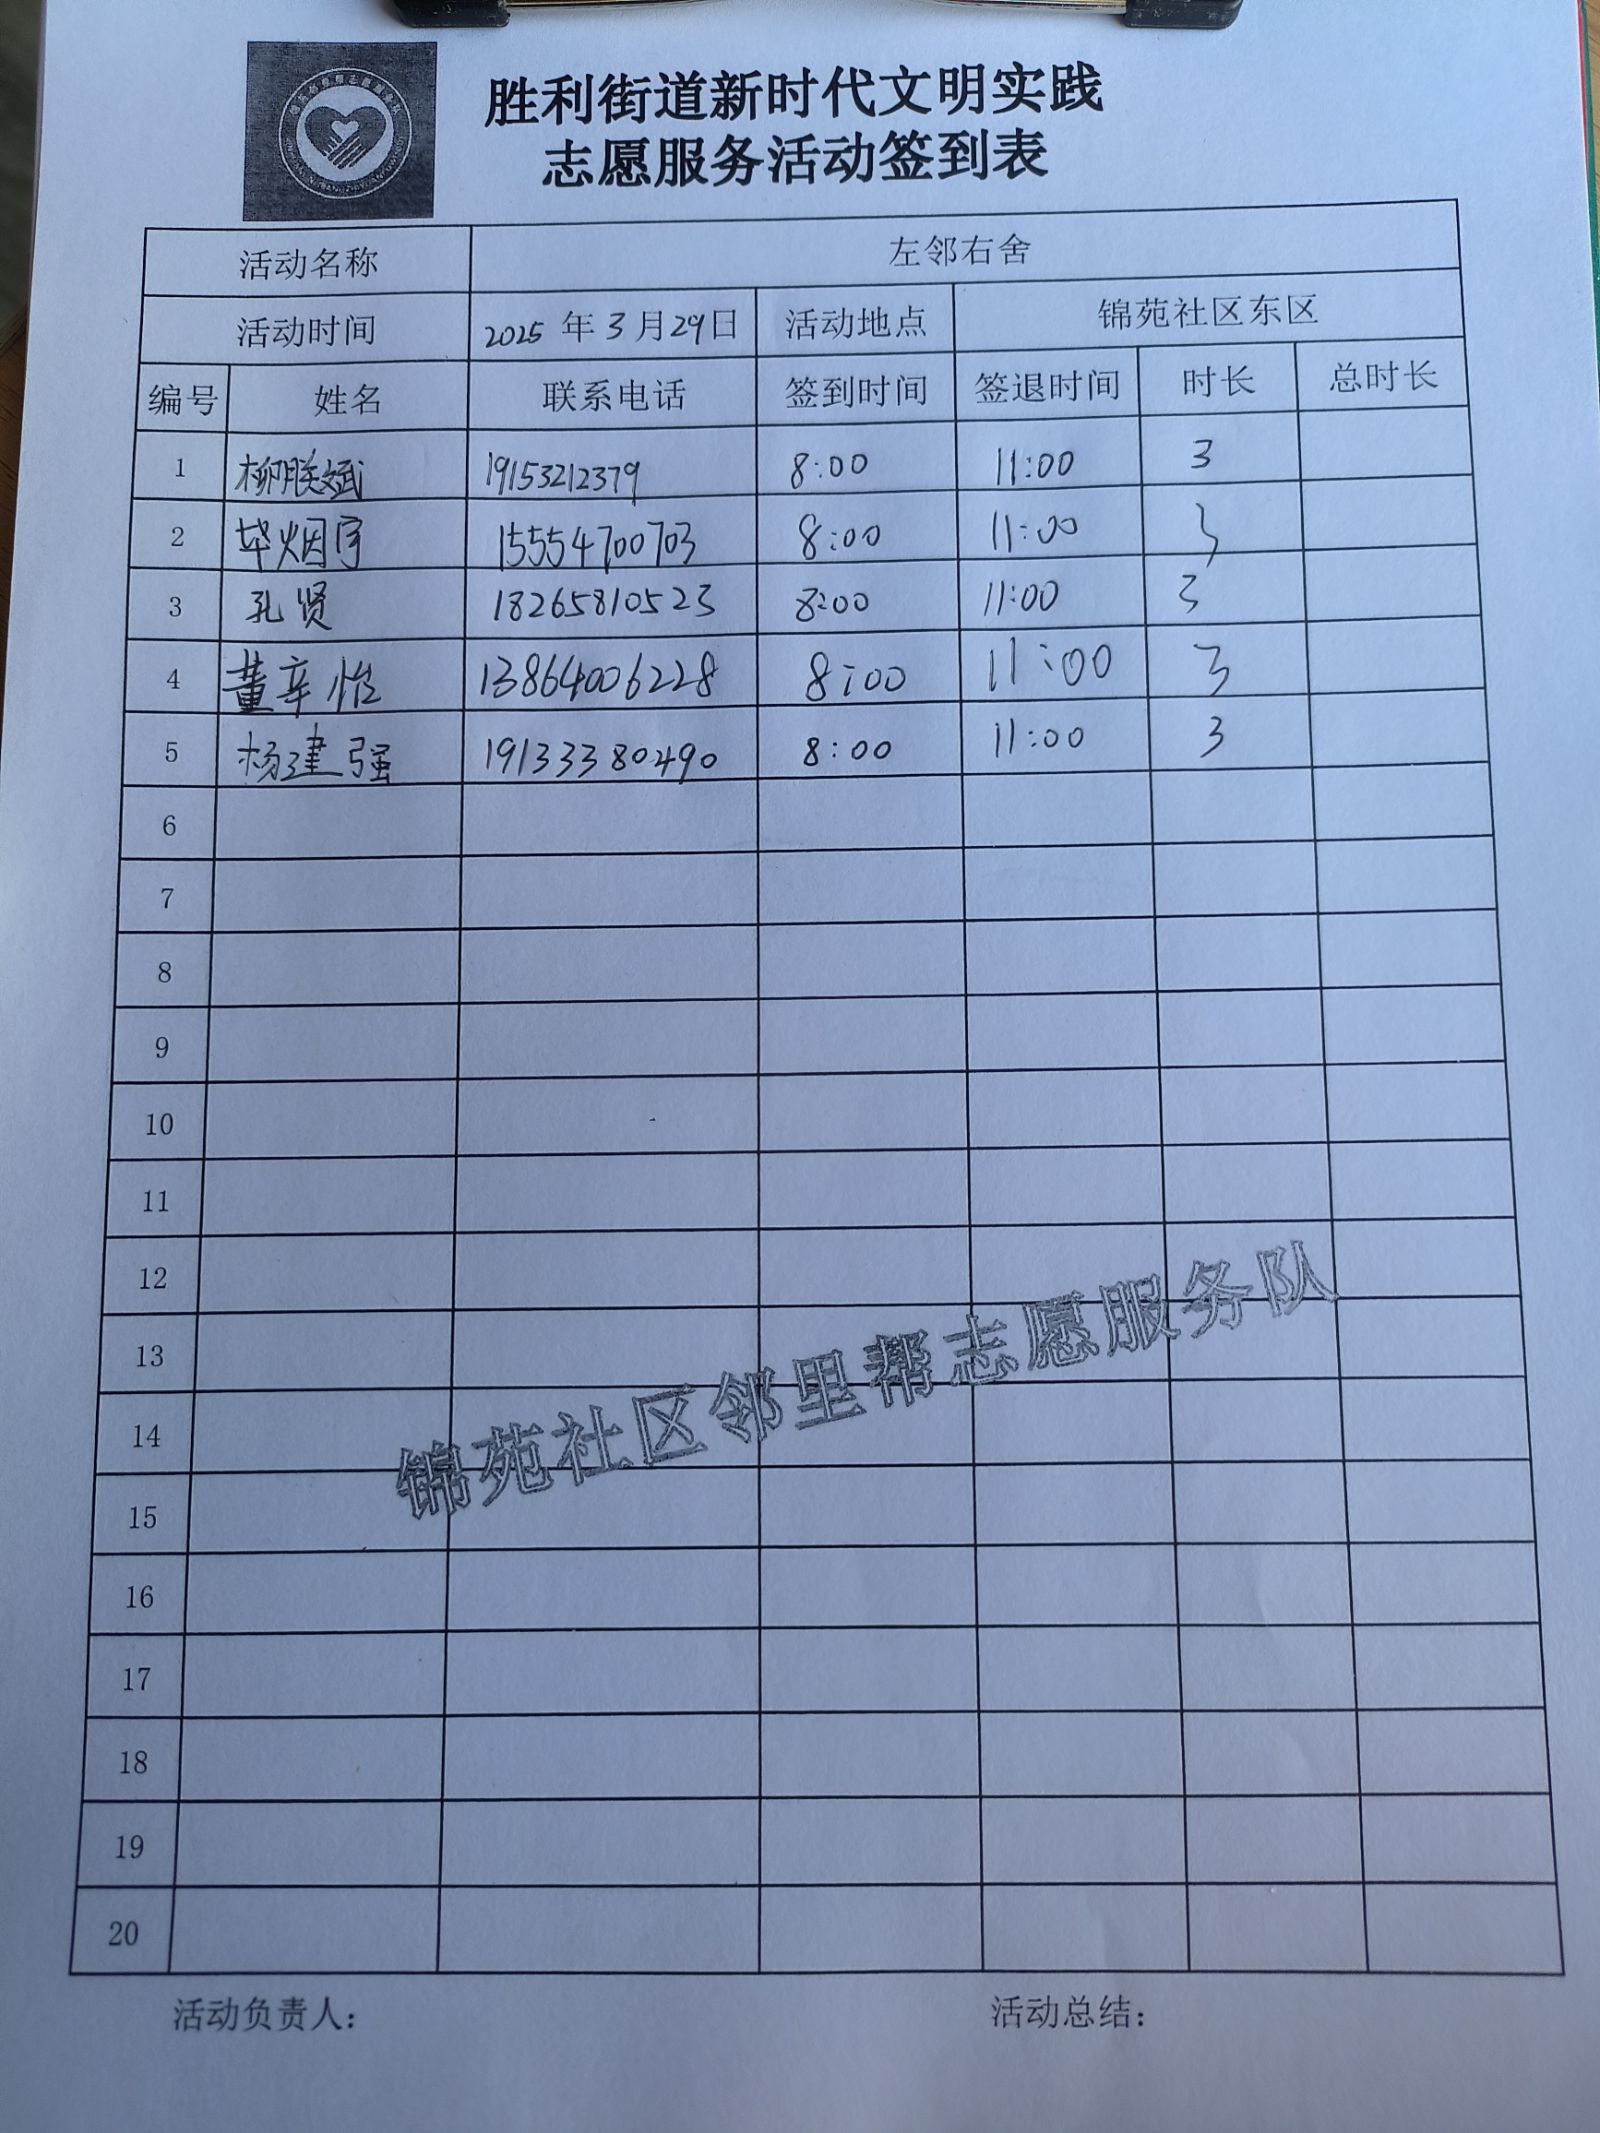 胜利街道新时代文明实践
志愿服务活动签到表
活动名称 左邻右舍
活动时间 2025 年 3 月 29 日 活动地点 锦苑社区东区
编号 姓名 联系电话 签到时间 签退时间 时长 总时长
1 柳朕斌 19153212379 8:00 11:00 3
2 毕烟宇 15554700703 8:00 11:00 3
3 孔贤 18265810523 8:00 11:00 3
4 董辛怡 13864006228 8:00 11:00 3
5 杨建强 19133380490 8:00 11:00 3
6
7
8
9
10
11
12
13
14
15
16
17
18
19
20
锦苑社区邻里帮志愿服务队
活动负责人： 活动总结：